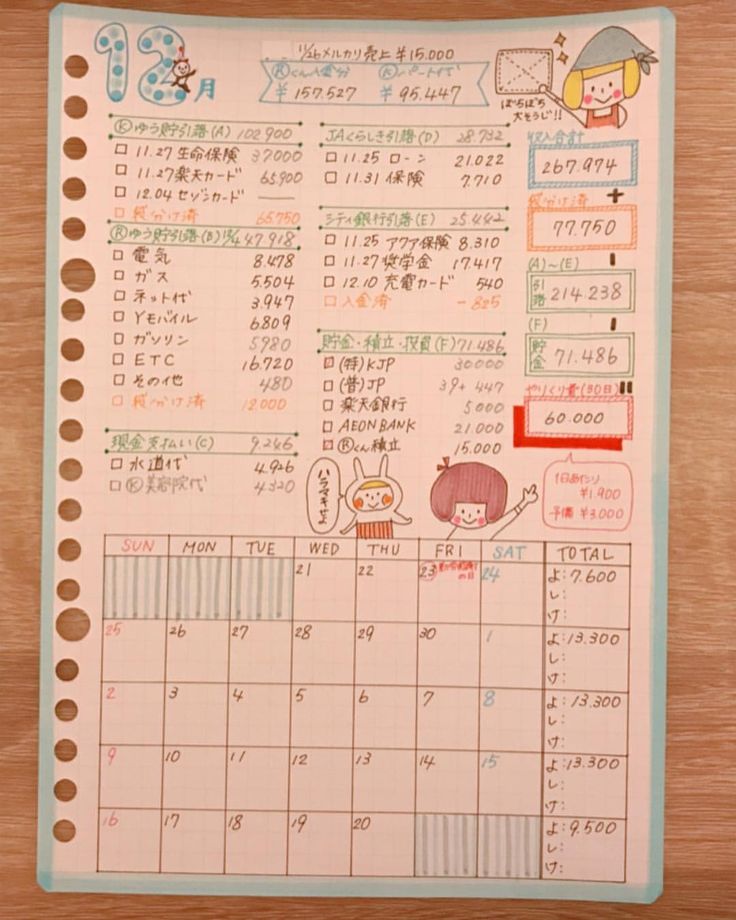 12月
11/26メルカリ売上 ¥15.000
Ⓡくん入金分 Ⓚパート代
¥157.527 ¥95.447
ぼちぼち
大そうじ!!
Ⓚゆう貯引落(A) 102.900
□ 11.27 生命保険 37000
□ 11.27楽天カード 65.900
□ 12.04 セゾンカード ―
□ 袋分け済 65.750
Ⓡゆう貯引落(B) 12/4 47.918
□ 電気 8.478
□ ガス 5.504
□ ネット代 3.947
□ Yモバイル 6.809
□ ガソリン 5.980
□ ETC 16.720
□ その他 480
□ 袋分け済 12.000
現金支払い(C) 9.246
□ 水道代 4.926
□ Ⓚ美容院代 4.320
JAくらしき引落(D) 28.732
□ 11.25 ローン 21.022
□ 11.31 保険 7.710
シティ銀行引落(E) 25.442
□ 11.25 アクア保険 8.310
□ 11.27 奨学金 17.417
□ 12.10 充電カード 540
□ 入金済 -825
貯金・積立・投資(F) 71.486
□ (特)KJP 30000
□ (普)JP 39+447
□ 楽天銀行 5.000
□ AEON BANK 21.000
□ Ⓡくん積立 15.000
収入合計
267.974
+
袋分け済
77.750
(A)~(E) -
引落 214.238
(F) -
貯金 71.486
やりくり費(30日) =
60.000
1日あたり
¥1.900
予備 ¥3.000
ハラマキせよ
SUN MON TUE WED THU FRI SAT TOTAL
21 22 23 勤労感謝の日 24 よ:7.600
し:
け:
25 26 27 28 29 30 1 よ:13.300
し:
け:
2 3 4 5 6 7 8 よ:13.300
し:
け:
9 10 11 12 13 14 15 よ:13.300
し:
け:
16 17 18 19 20 よ:9.500
し:
け: